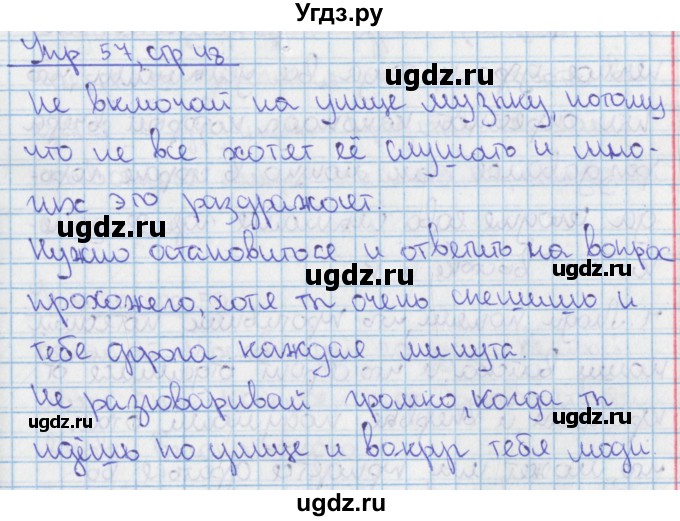 Угдз.ру
Упр 57, стр 48
ugdz.ru
Не включай на улице музыку, потому
ugdz.ru
что не все хотят её слушать и мно-
гих это раздражает.
ugdz.ru ugdz.ru
Нужно остановиться и ответить на вопрос
ugdz.ru
прохожего, хотя ты очень спешишь и
тебе дорога каждая минута.
Не разговаривай громко, когда ты
ugdz.ru ugdz.ru
идёшь по улице и вокруг тебя люди.
ugdz.ru